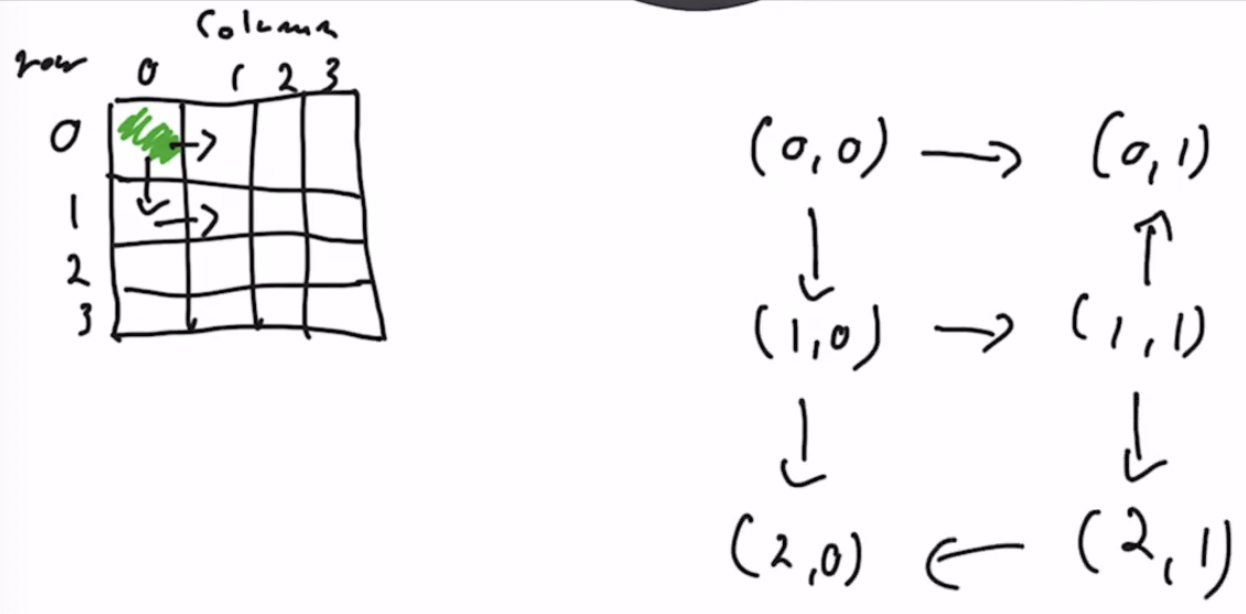 Column
row
0 1 2 3
0
1
2
3
(0,0) → (0,1)
↓ ↑
(1,0) → (1,1)
↓ ↓
(2,0) ← (2,1)